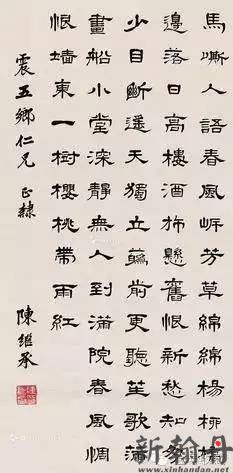 馬嘶人語春風岸芳草綿綿楊柳橋
邊落日高樓酒旆懸舊恨新愁知多
少目斷遙天獨立蘤前更聽笙歌滿
畫船小堂深靜無人到滿院春風惆
悵墻東一樹櫻桃帶雨紅
震五鄉仁兄正隸
陳繼承
新翰丹
www.xinhandan.net